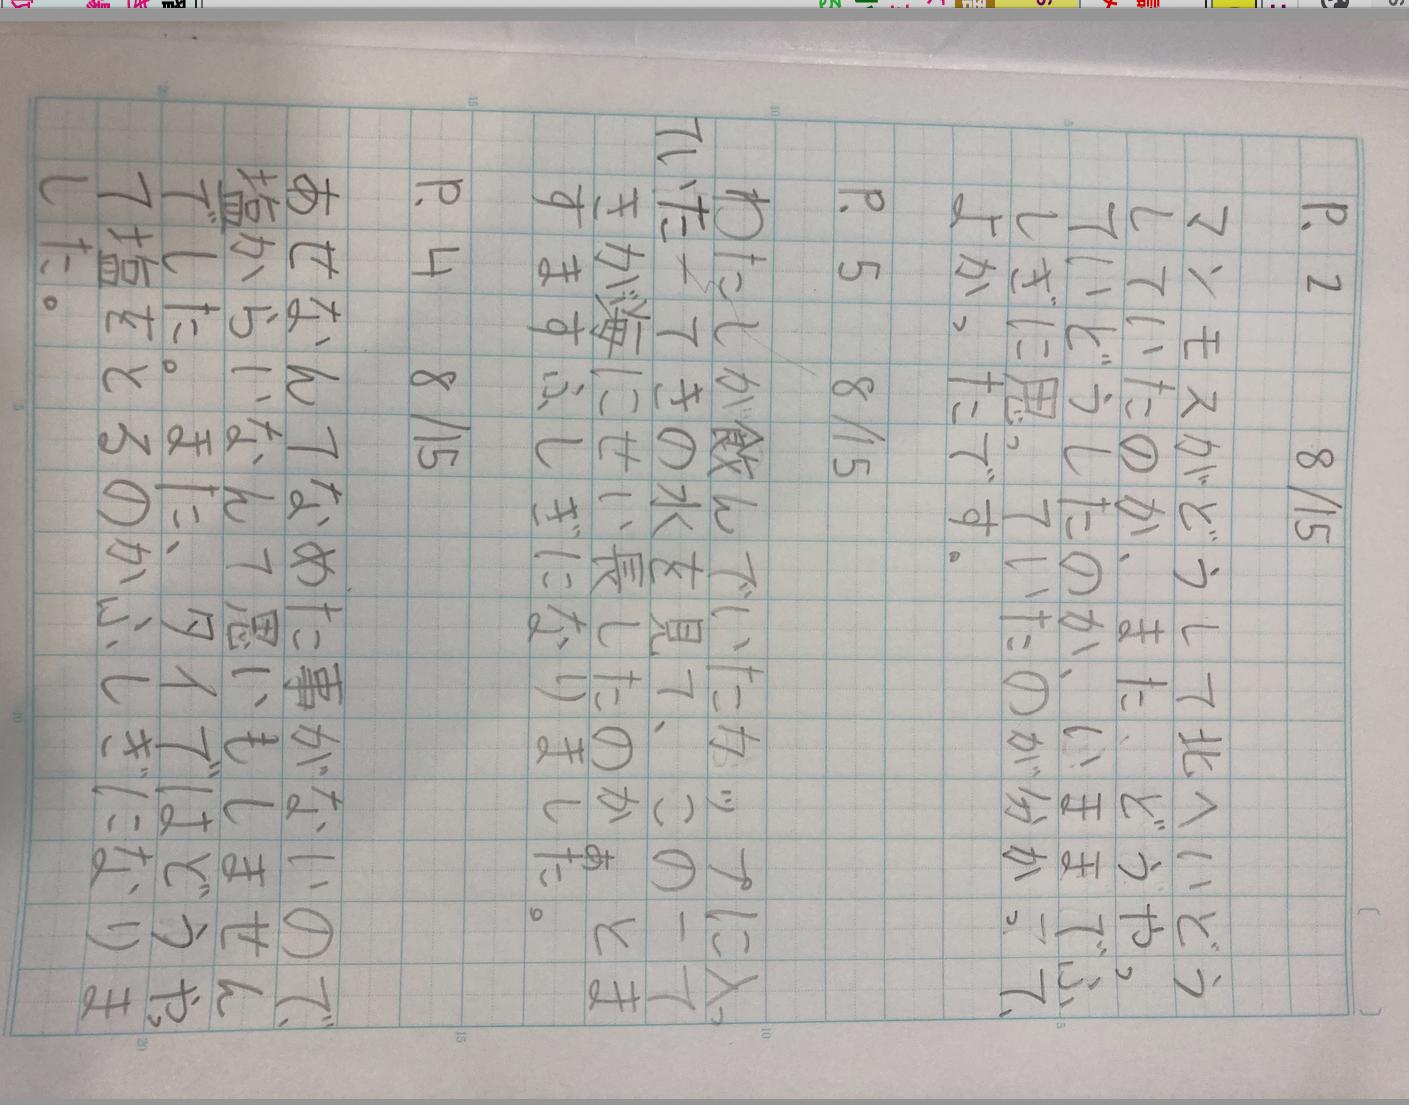 P.2 8/15
マンモスがどうして北へいどう
していたのか、また、どうやっ
ていどうしたのか、いままでふ
しぎに思っていたのが分かって、
よかったです。
P.5 8/15
わたしが飲んでいたカップに入っ
ていた一てきの水を見て、この一て
きが海にせい長したのかあとま
すますふしぎになりました。
P.4 8/15
あせなんてなめた事がないので、
塩からいなんて思いもしません
でした。また、タイではどうやっ
て塩をとるのかふしぎになりま
した。